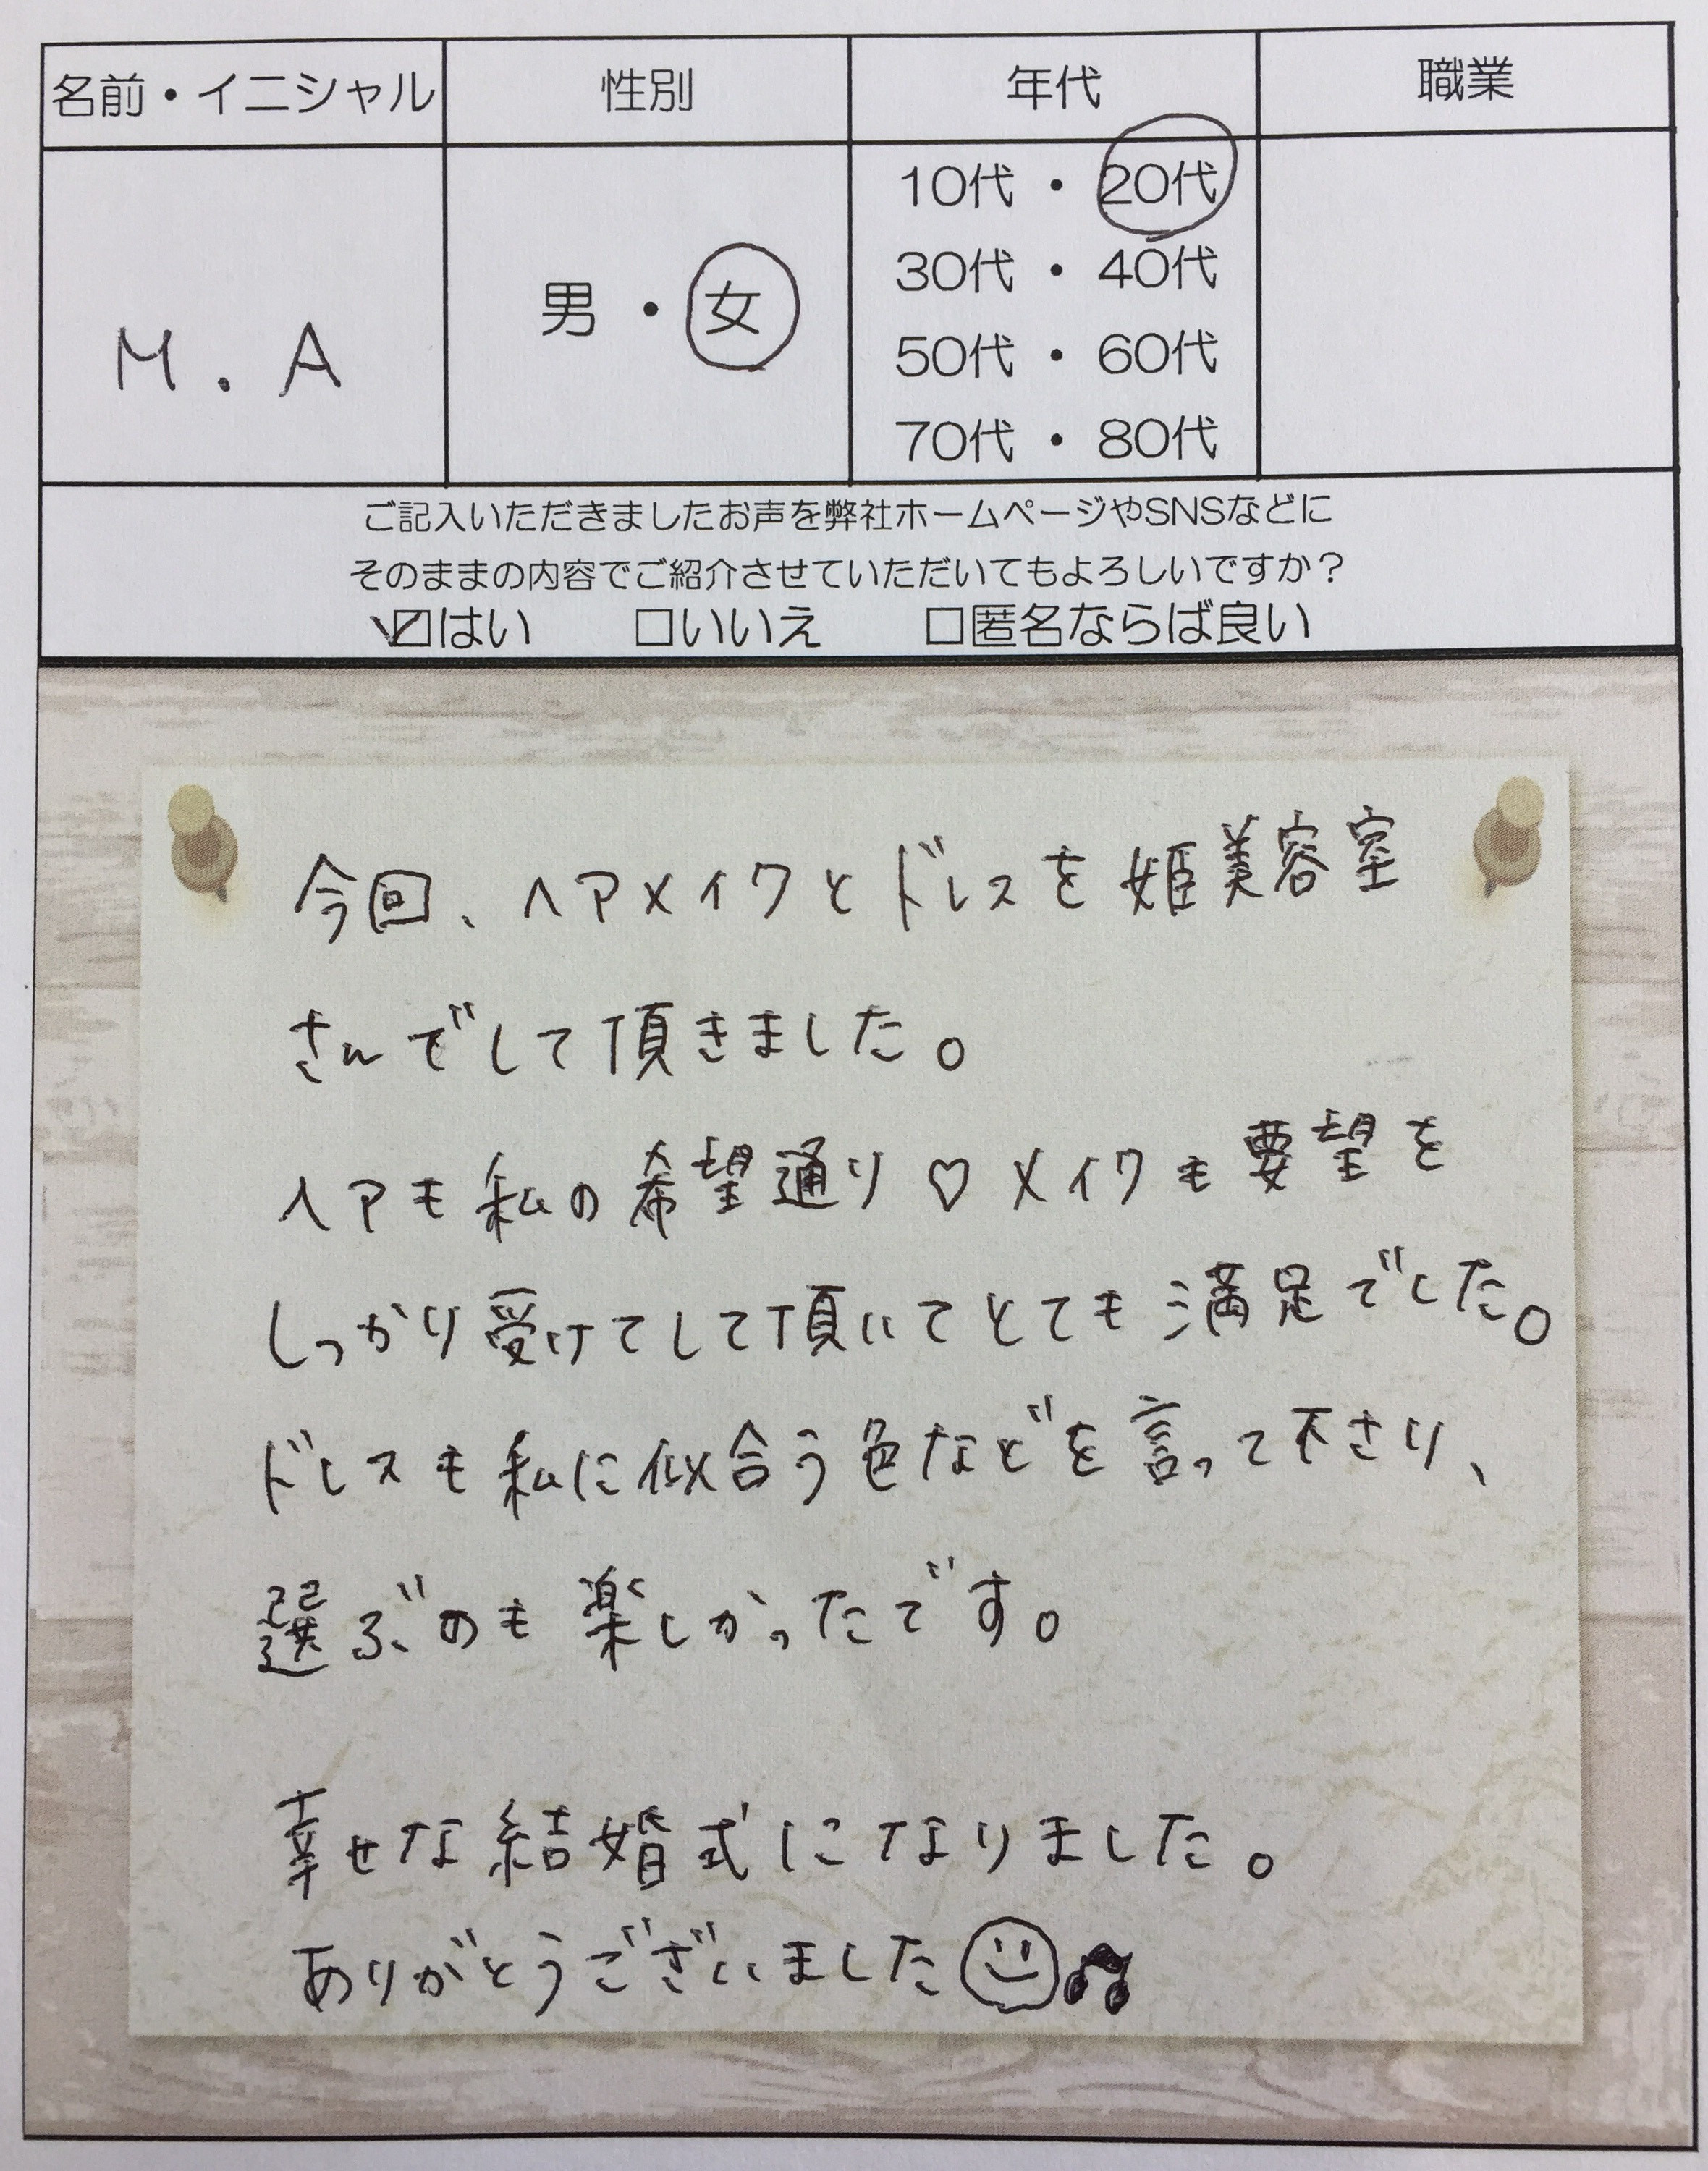 名前・イニシャル 性別 年代 職業
M.A 男・女 10代・20代
30代・40代
50代・60代
70代・80代
ご記入いただきましたお声を弊社ホームページやSNSなどに
そのままの内容でご紹介させていただいてもよろしいですか？
☑はい □いいえ □匿名ならば良い
今回、ヘアメイクとドレスを姫美容室
さんでして頂きました。
ヘアも私の希望通り♡メイクも要望を
しっかり受けてして頂いてとても満足でした。
ドレスも私に似合う色などを言って下さり、
選ぶのも楽しかったです。
幸せな結婚式になりました。
ありがとうございました☺♫